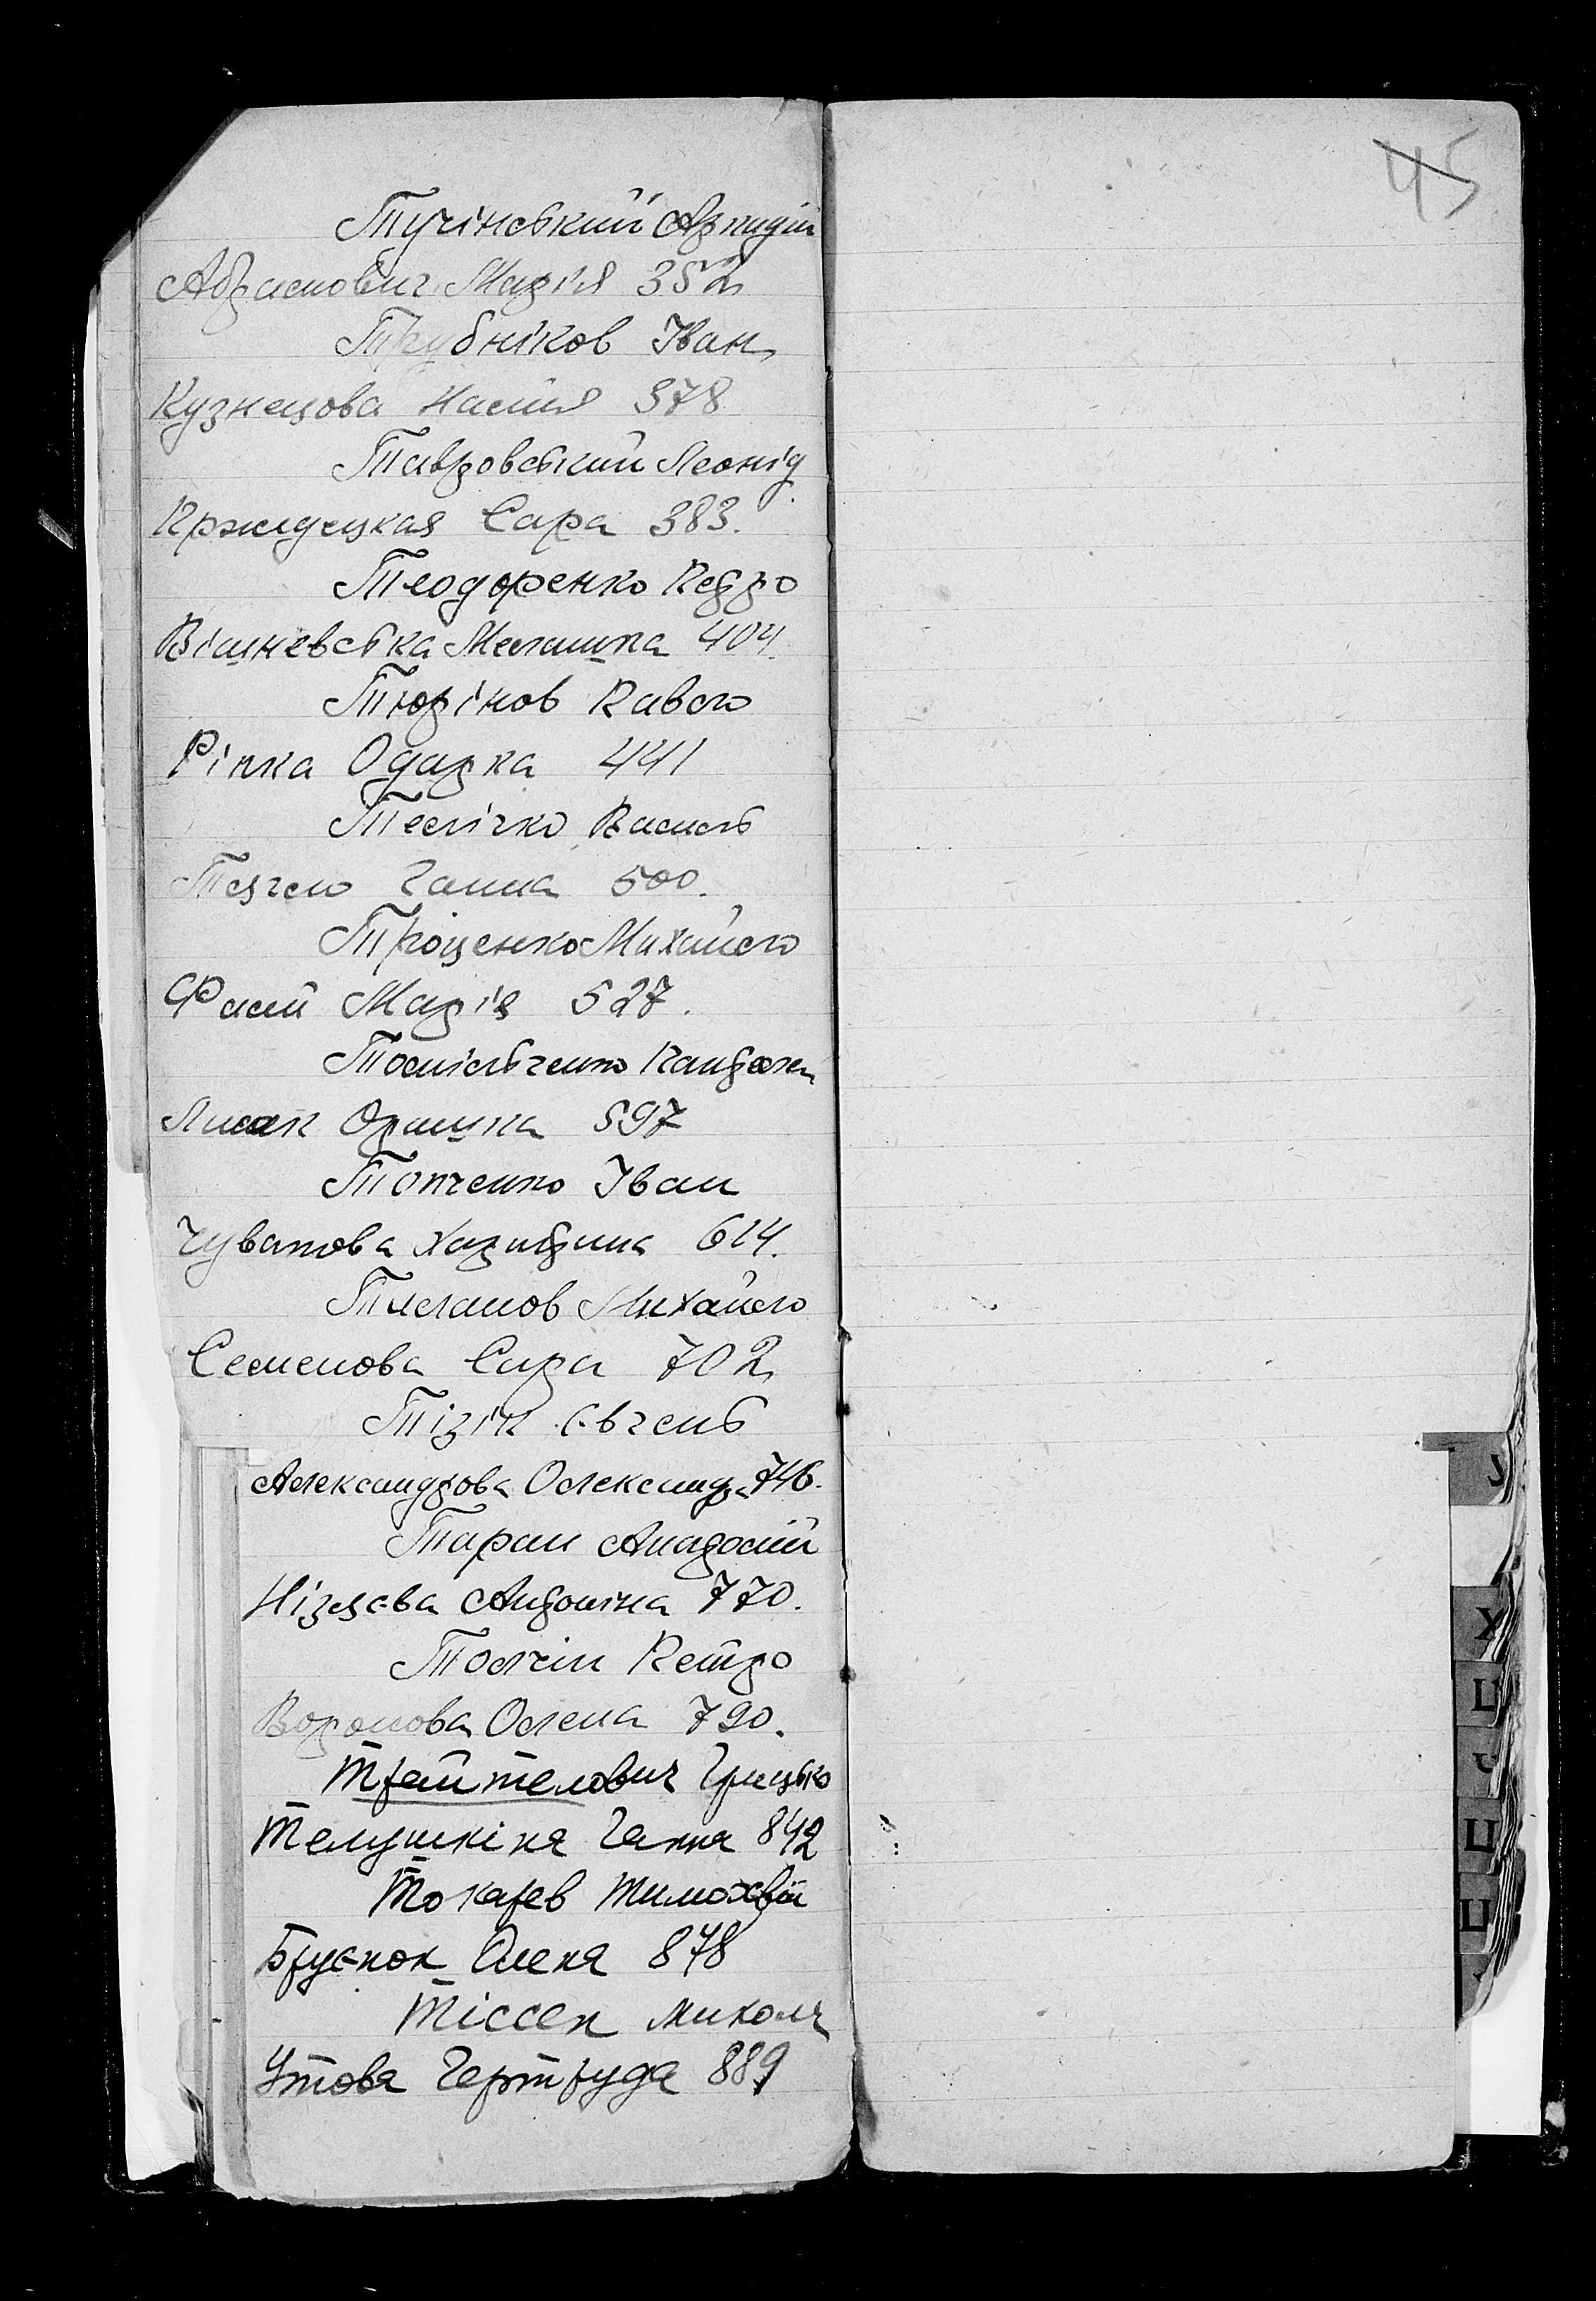 45
Тучінський Аркадій
Абрамович Марія 352
Трубніков Іван
Кузнецова Настя 378
Тавровський Леонід
Пржидецкая Сара 383.
Теодоренко Педро
Вішневська Мелашка 404.
Тюрінов Павло
Ріпка Одарка 441
Телічко Василь
Ганна 500.
Троценко Михайло
Фаст Марія 527.
Лисак Оришка 597
Топченко Іван
Чуватова 614.
Михайло
Семенова Сара 702
Тізік Євгень
Александрова Олександра 746.
Таран Анатолій
Антоніна 770.
Толчін Петро
Воронова Олена 790.
Трайтелович Грицько
Телушкіна Ганна 842
Токарев Тимохвій
Бруєнок Олена 878
Тіссен Микола
Утова Гертруда 889
Х
Ц
Ч
Ш
Щ